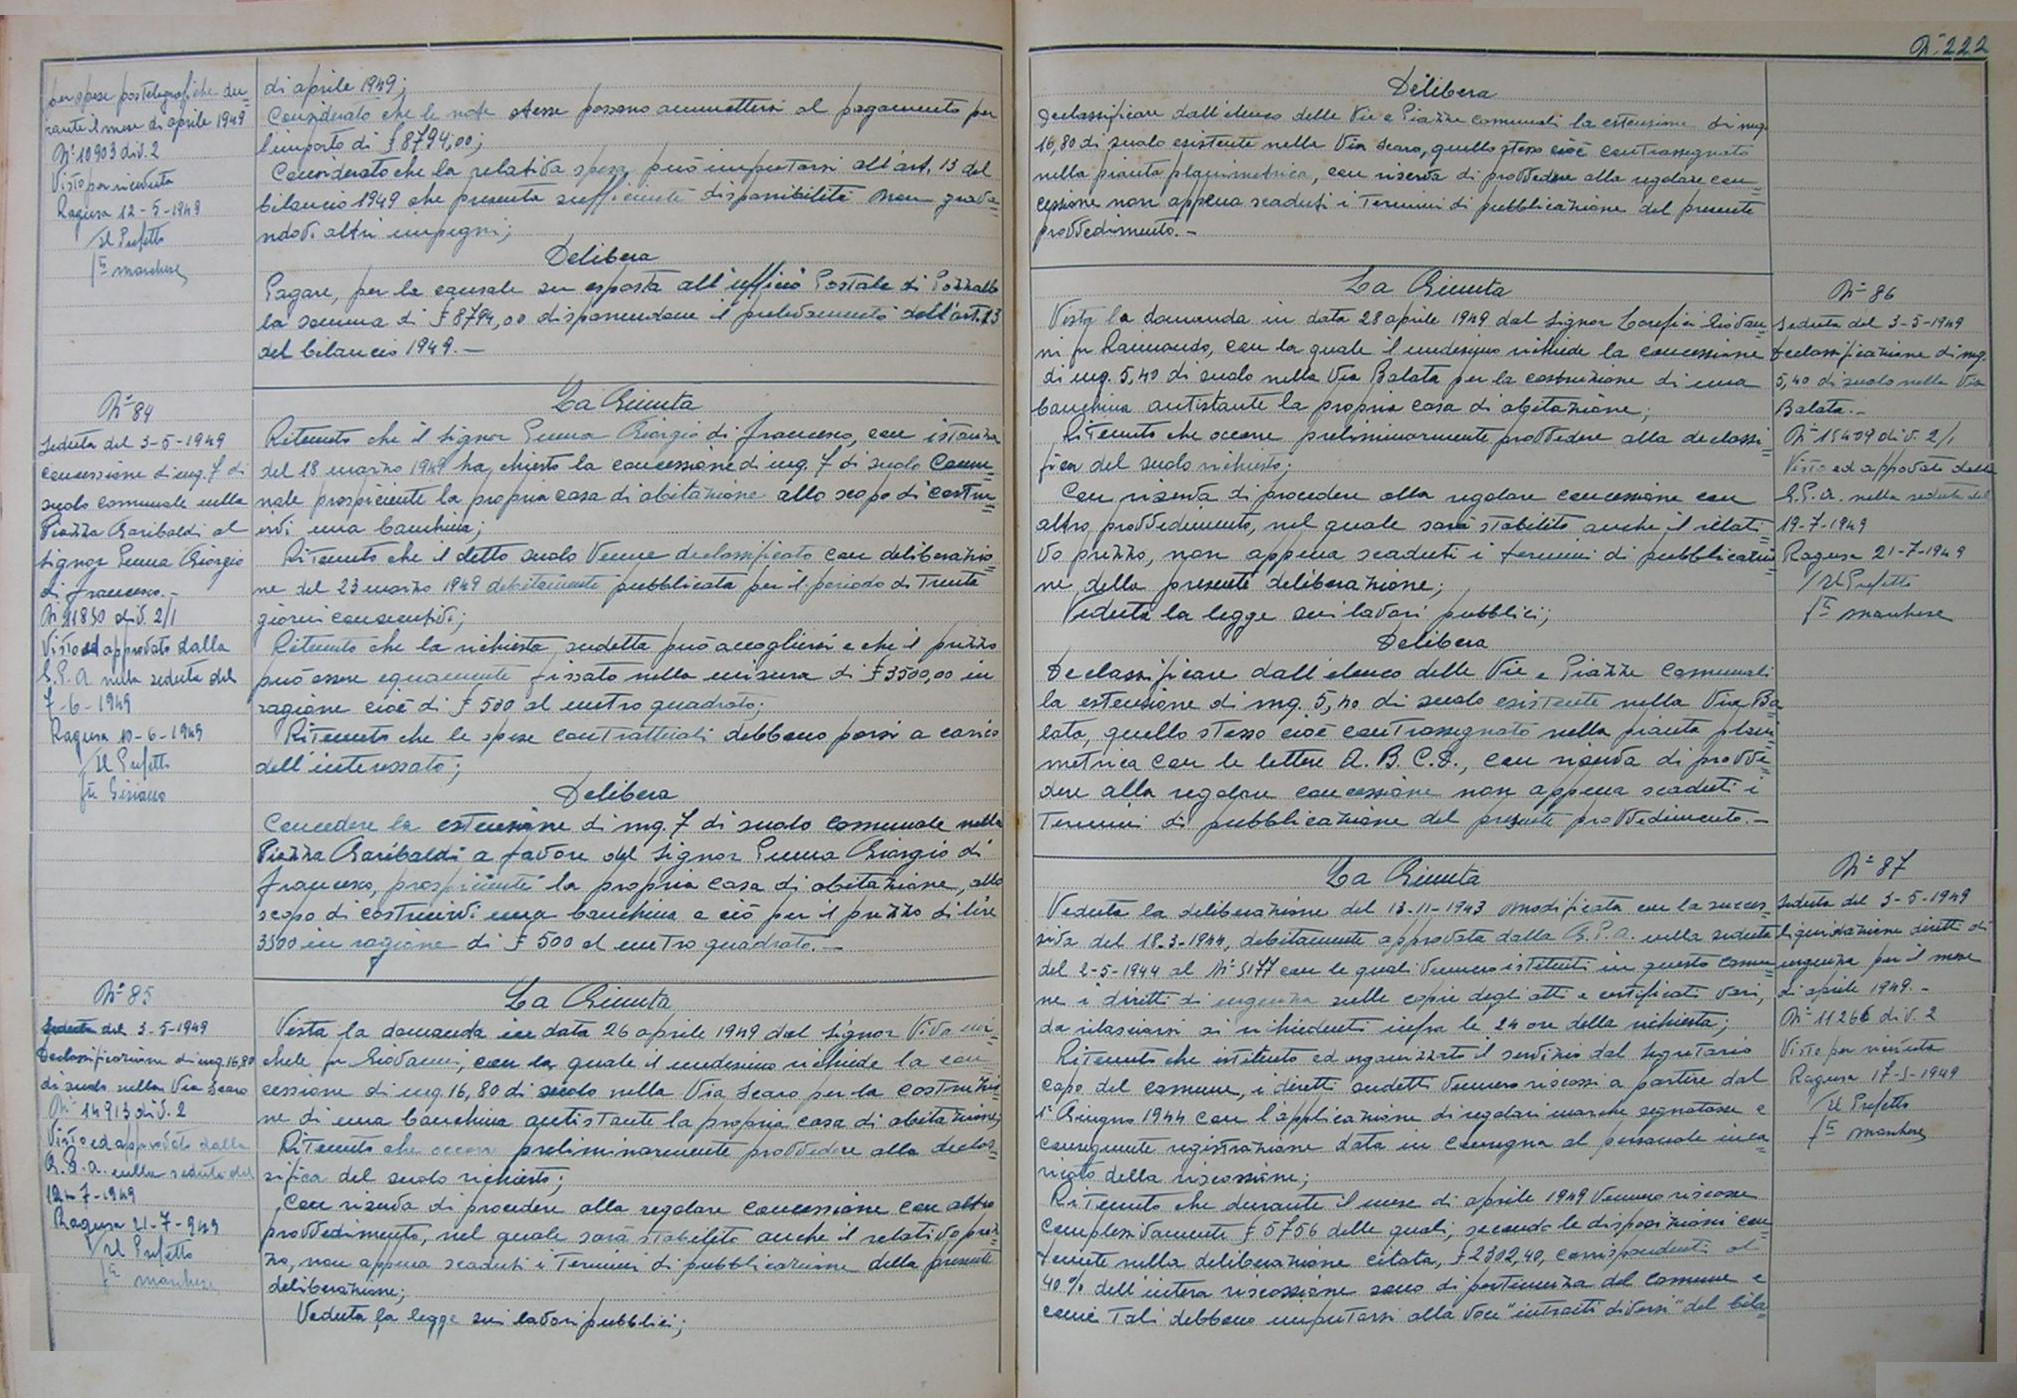 per spese postelegrafiche du=
rante il mese di aprile 1949
N° 10903 div. 2
Visto per ricevuta
Ragusa 12-5-1949
Il Prefetto
f.to marchese
di aprile 1949;
Considerato che le note stesse possono ammettersi al pagamento per
l'importo di £ 8794,00;
Considerato che la relativa spesa può imputarsi all'art. 13 del
bilancio 1949 che presenta sufficiente disponibilità non grava=
ndovi altri impegni;
Delibera
Pagare, per la causale su esposta all'ufficio Postale di Pozzallo
la somma di £ 8794,00 disponendone il prelevamento dall'art. 13
del bilancio 1949.-
N° 84
Seduta del 3-5-1949
Concessione di mq. 7 di
suolo comunale nella
Piazza Garibaldi al
Signor Giorgio
di Francesco.-
N° 11830 div. 2/1
Visto ed approvato dalla
G.P.A. nella seduta del
7-6-1949
Ragusa 10-6-1949
Il Prefetto
f.to
La Giunta
Ritenuto che il Signor Giorgio di Francesco, con istanza
del 18 marzo 1949 ha chiesto la concessione di mq. 7 di suolo Comu=
nale prospiciente la propria casa di abitazione allo scopo di costru=
irvi una banchina;
Ritenuto che il detto suolo venne declassificato con deliberazio
ne del 23 marzo 1949 debitamente pubblicata per il periodo di Trenta
giorni consecutivi;
Ritenuto che la richiesta sudetta può accogliersi e che il prezzo
può essere equamente fissato nella misura di £ 3500,00 in
ragione cioè di £ 500 al metro quadrato;
Ritenuto che le spese contrattuali debbono porsi a carico
dell'interessato;
Delibera
Concedere la estensione di mq. 7 di suolo comunale nella
Piazza Garibaldi a favore del Signor Giorgio di
Francesco, prospiciente la propria casa di abitazione, allo
scopo di costruirvi una banchina e ciò per il prezzo di lire
3500 in ragione di £ 500 al metro quadrato.-
N° 85
Seduta del 3-5-1949
Declassificazione di mq. 16,80
di suolo nella Via Scaro
N° 14913 div. 2
Visto ed approvato dalla
G.P.A. nella seduta del
12-7-1949
Ragusa 21-7-949
Il Prefetto
f.to marchese
La Giunta
Vista la domanda in data 26 aprile 1949 del Signor Viva mi=
chele fu Giovanni, con la quale il medesimo richiede la con
cessione di mq. 16,80 di suolo nella Via Scaro per la costruzio
ne di una banchina antistante la propria casa di abitazione;
Ritenuto che occorre preliminarmente provvedere alla declas=
sifica del suolo richiesto;
Con riserva di procedere alla regolare concessione con altro
provvedimento, nel quale sarà stabilito anche il relativo prez=
zo, non appena scaduti i Termini di pubblicazione della presente
deliberazione;
Veduta la legge sui lavori pubblici;
N° 222
Delibera
Declassificare dall'elenco delle Vie e Piazze comunali la estensione di mq.
16,80 di suolo esistente nella Via Scaro, quello stesso cioè contrassegnato
nella pianta planimetrica, con riserva di provvedere alla regolare con=
cessione non appena scaduti i Termini di pubblicazione del presente
provvedimento.-
La Giunta
Vista la domanda in data 28 aprile 1949 del Signor Giovan=
ni fu Raimondo, con la quale il medesimo richiede la concessione
di mq. 5,40 di suolo nella Via Balata per la costruzione di una
banchina antistante la propria casa di abitazione;
Ritenuto che occorre preliminarmente provvedere alla declassi=
fica del suolo richiesto;
Con riserva di procedere alla regolare concessione con
altro provvedimento, nel quale sarà stabilito anche il relati=
vo prezzo, non appena scaduti i termini di pubblicazio=
ne della presente deliberazione;
Veduta la legge sui lavori pubblici;
Delibera
Declassificare dall'elenco delle Vie e Piazze Comunali
la estensione di mq. 5,40 di suolo esistente nella Via Ba
lata, quello stesso cioè contrassegnato nella pianta plani
metrica con le lettere A. B. C. D., con riserva di provve=
dere alla regolare concessione non appena scaduti i
Termini di pubblicazione del presente provvedimento.-
N° 86
Seduta del 3-5-1949
Declassificazione di mq.
5,40 di suolo nella Via
Balata.-
N° 15409 div. 2/1
Visto ed approvato dalla
G.P.A. nella seduta del
19-7-1949
Ragusa 21-7-1949
Il Prefetto
f.to marchese
La Giunta
Veduta la deliberazione del 13-11-1943 modificata con la succes=
siva del 18-3-1944, debitamente approvata dalla G.P.A. nella seduta
del 2-5-1944 al N° 5177 con le quali vennero istituiti in questo Comu=
ne i diritti di urgenza sulle copie degli atti e certificati vari,
da rilasciarsi ai richiedenti infra le 24 ore della richiesta;
Ritenuto che istituito ed organizzato il servizio dal Segretario
capo del comune, i diritti sudetti vennero riscossi a partire dal
1° Giugno 1944 con l'applicazione di regolari marche segnatasse e
conseguente registrazione data in consegna al personale inca=
ricato della riscossione;
Ritenuto che durante il mese di aprile 1949 vennero riscosse
complessivamente £ 5756 delle quali, secondo le disposizioni con=
tenute nella deliberazione citata, £ 2302,40, corrispondenti al
40% dell'intera riscossione sono di pertinenza del Comune e
come Tali debbono imputarsi alla voce "introiti diversi" del bila=
N° 87
Seduta del 3-5-1949
Liquidazione diritti di
urgenza per il mese
di aprile 1949.-
N° 11266 div. 2
Visto per ricevuta
Ragusa 17-5-1949
Il Prefetto
f.to marchese